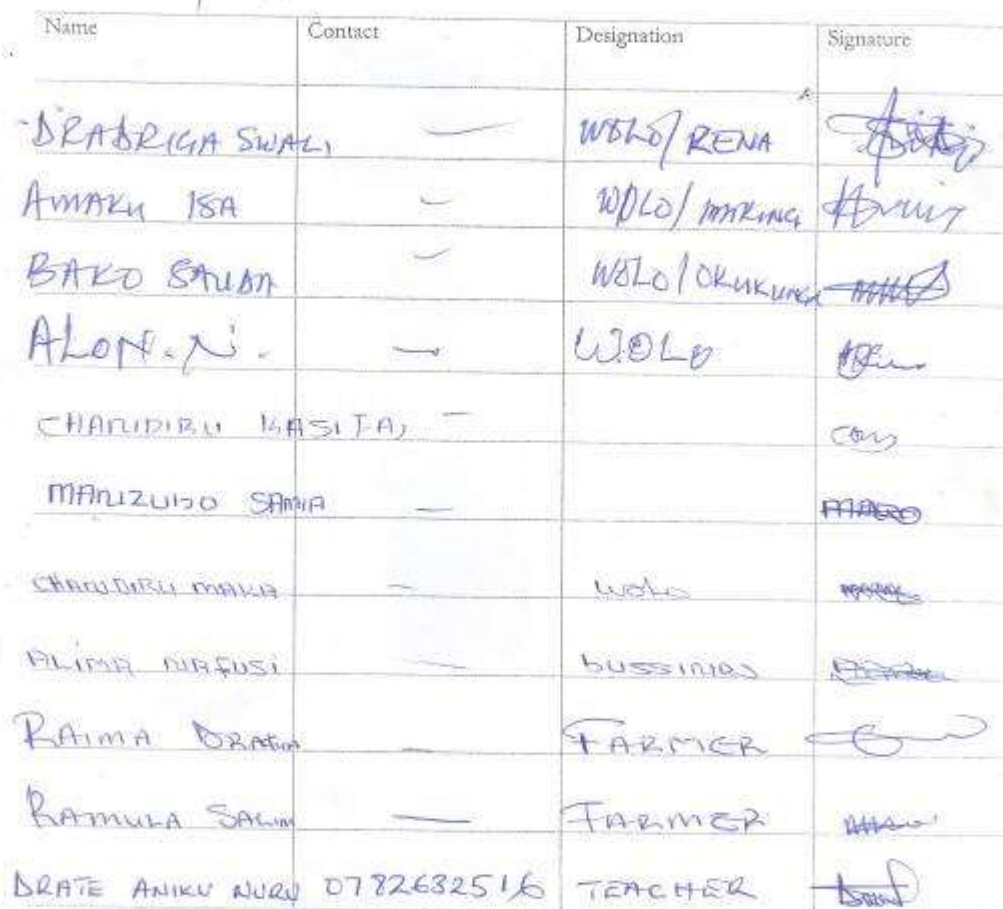 Name Contact Designation Signature
DRABRIGA SWALI — WOLO/RENA
AMAKU ISA — WOLO/
BAKO SAUDA — WOLO/OKUKUNGA
ALON. N. — W.OLO
CHANDIRU KASIFA —
MANIZUBO SAMIA —
CHANDIRU MAKA — WOLO
ALIMA NAFUSI — BUSSINIAS
RAIMA — FARMER
RAMULA SALIM — FARMER
DRATE ANIKU NURU 0782632516 TEACHER